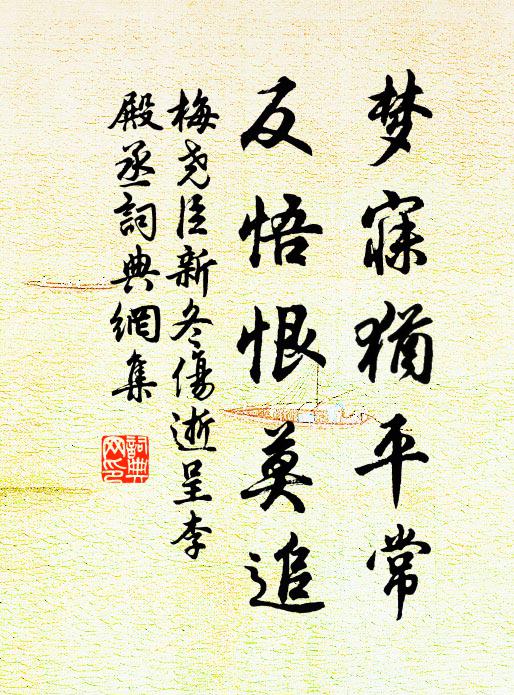 梦寐犹平常
反悟恨莫追
梅尧臣新冬傷逝呈李
殿丞詞典網集
詞典网印